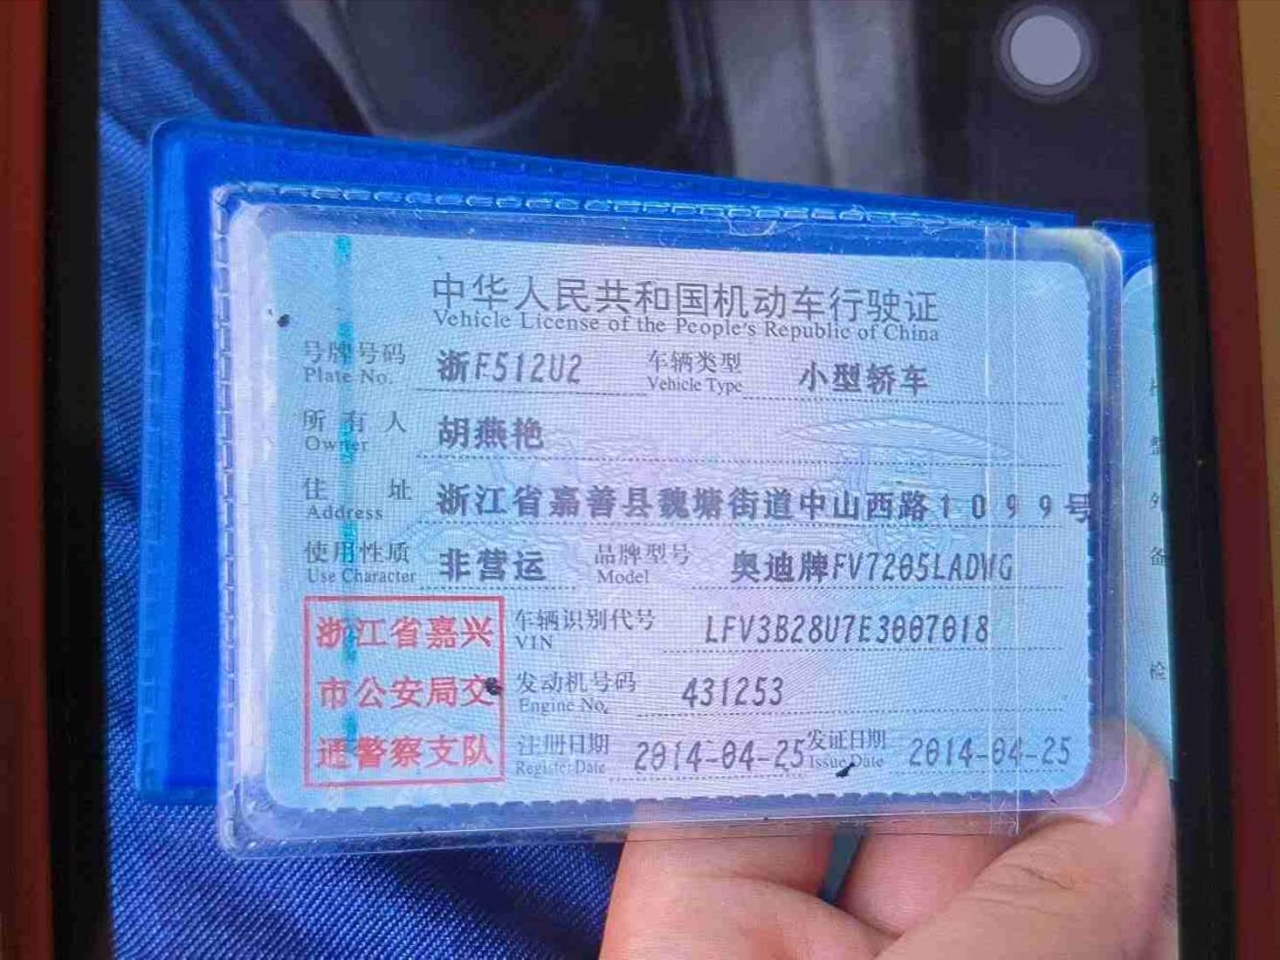 中华人民共和国机动车行驶证
Vehicle License of the People's Republic of China
号牌号码 浙F512U2 车辆类型 小型轿车
Plate No. Vehicle Type
所有人 胡燕艳
Owner
住址 浙江省嘉善县魏塘街道中山西路1099号
Address
使用性质 非营运 品牌型号 奥迪牌FV7205LADWG
Use Character Model
浙江省嘉兴
市公安局交
通警察支队
车辆识别代号 LFV3B28U7E3007018
VIN
发动机号码 431253
Engine No.
注册日期 2014-04-25 发证日期 2014-04-25
Register Date Issue Date